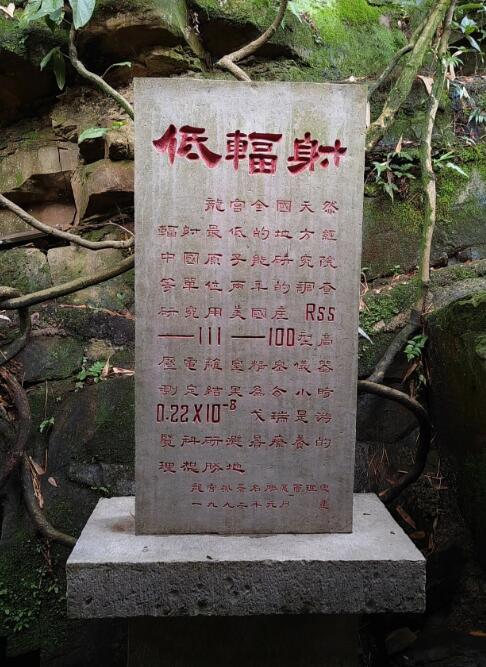 低輻射
龍宮全國天然
輻射最低的地方經
中國原子能研究院
等單位兩年的調查
研究用美國産Rss
——111——100型高
壓電離室精密儀器
測定結果為今小時
0.22X10⁻⁸戈瑞是游
覽科研避暑療養的
理想勝地
龍宮風景名勝區管理處
一九九二年元月 建